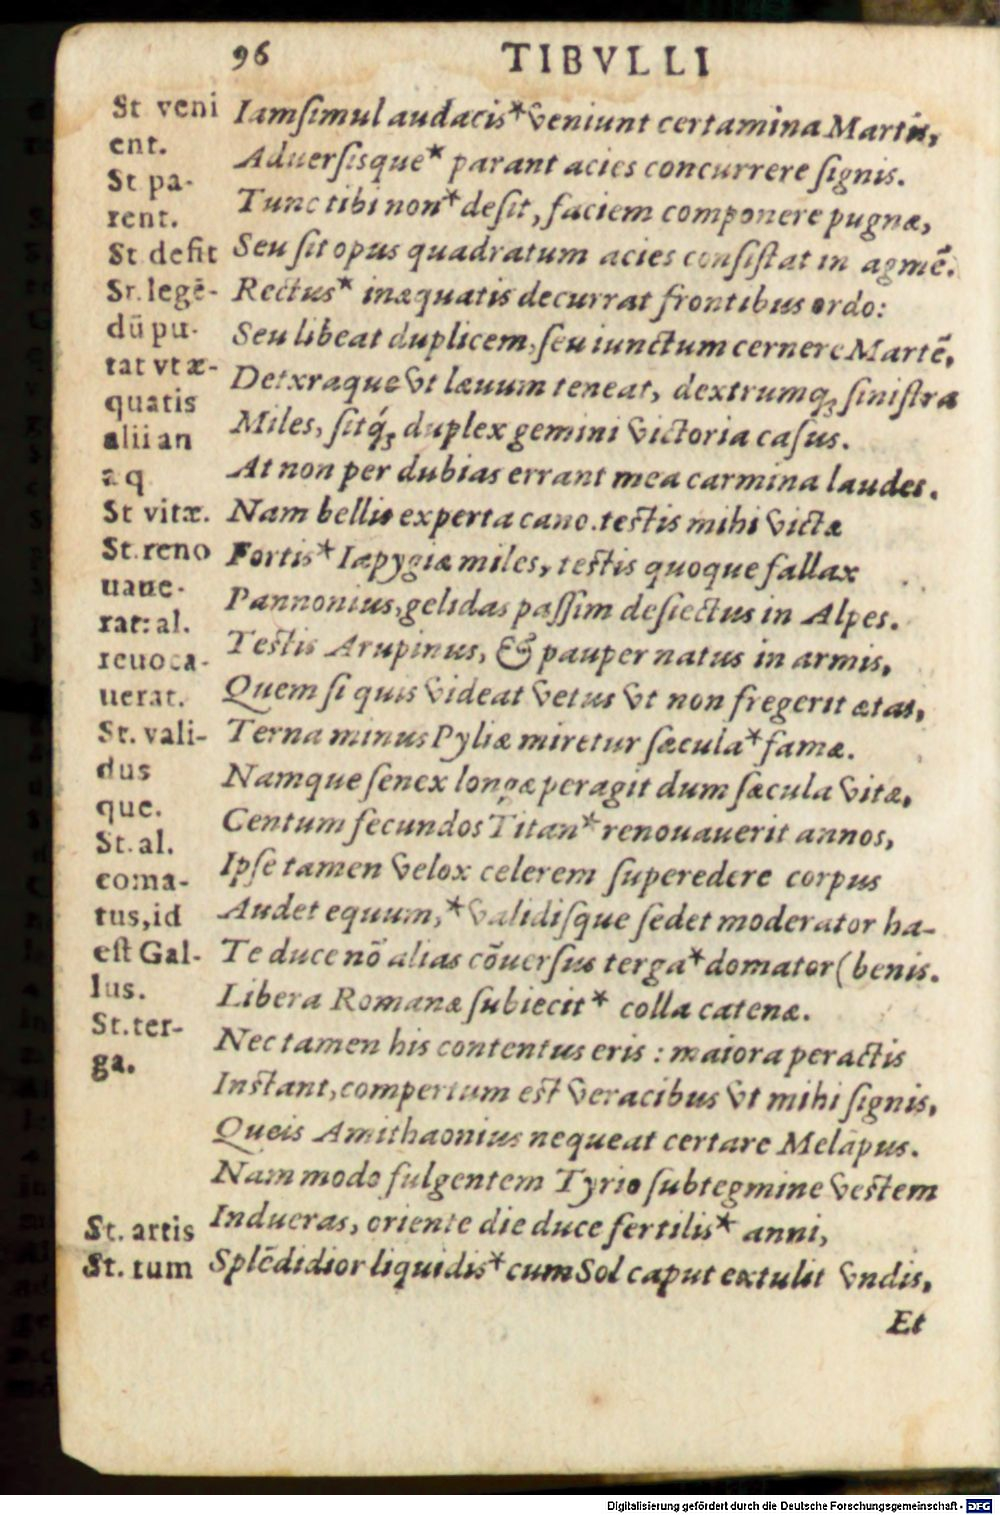 96 TIBVLLI
Iamſimul audacis* veniunt certamina Martis,
Aduerſisque* parant acies concurrere ſignis.
Tunc tibi non* deſit, faciem componere pugnæ,
Seu ſit opus quadratum acies conſiſtat in agmē.
Rectus* inæquatis decurrat frontibus ordo:
Seu libeat duplicem, ſeu iunctum cernere Martē,
Detxraque vt læuum teneat, dextrumq; ſiniſtra
Miles, ſitq́; duplex gemini victoria caſus.
At non per dubias errant mea carmina laudes.
Nam bellis experta cano. teſtis mihi victæ
Fortis* Iapygiæ miles, teſtis quoque fallax
Pannonius, gelidas paſſim deſiectus in Alpes.
Teſtis Arupinus, & pauper natus in armis,
Quem ſi quis videat vetus vt non fregerit ætas,
Terna minus Pyliæ miretur ſæcula* famæ.
Namque ſenex longæ peragit dum ſæcula vitæ,
Centum ſecundos Titan* renouauerit annos,
Ipſe tamen velox celerem ſuperedere corpus
Audet equum,* validiſque ſedet moderator ha-
Te duce nō alias cōuerſus terga* domator (benis.
Libera Romanæ ſubiecit* colla catenæ.
Nec tamen his contentus eris: maiora peractis
Inſtant, compertum eſt veracibus vt mihi ſignis,
Queis Amithaonius nequeat certare Melāpus.
Nam modo fulgentem Tyrio ſubtegmine veſtem
Indueras, oriente die duce fertilis* anni,
Splēdidior liquidis* cum Sol caput extulit vndis,
Et
St veni
ent.
St pa-
rent.
St deſit
Sr. legē-
dū pu-
tat vt æ-
quatis
alii an
a q
St vitæ.
St. reno
uaue-
rat: al.
reuoca-
uerat.
St. vali-
dus
que.
St. al.
coma-
tus, id
eſt Gal-
lus.
St. ter-
ga.
St. artis
St. tum
Digitalisierung gefördert durch die Deutsche Forschungsgemeinschaft - DFG